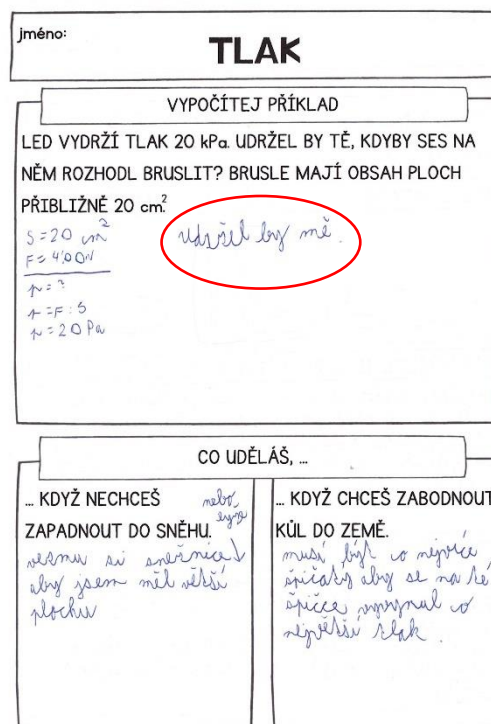 jméno:
TLAK
VYPOČÍTEJ PŘÍKLAD
LED VYDRŽÍ TLAK 20 kPa. UDRŽEL BY TĚ, KDYBY SES NA
NĚM ROZHODL BRUSLIT? BRUSLE MAJÍ OBSAH PLOCH
PŘIBLIŽNĚ 20 cm².
S=20 cm²
Udržel by mě.
F=400N
p=?
p=F:S
p=20Pa
CO UDĚLÁŠ, ...
... KDYŽ NECHCEŠ
ZAPADNOUT DO SNĚHU.
nebo
lyže
vezmu si sněžnice
aby jsem měl větší
plochu
... KDYŽ CHCEŠ ZABODNOUT
KŮL DO ZEMĚ.
musí být co nejvíce
špičatý aby se na té
špičce co
největší tlak.